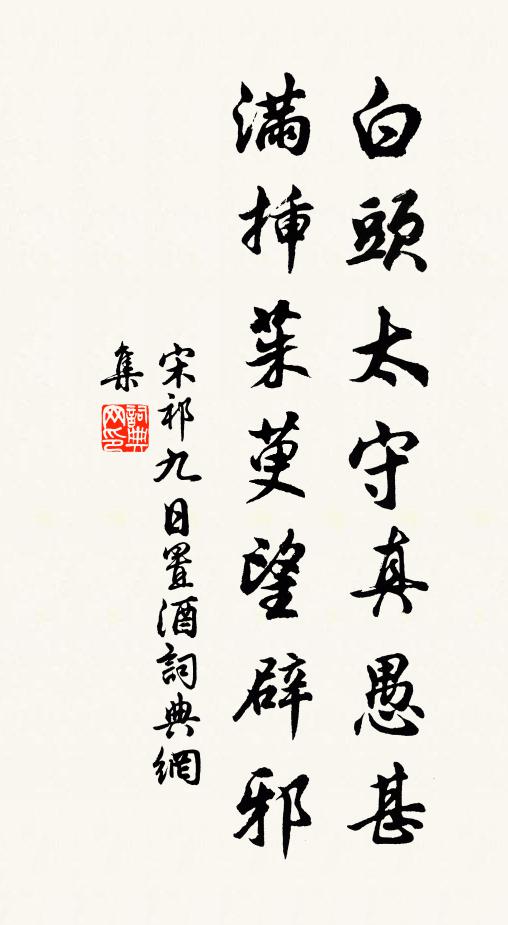 白頭太守真愚甚
滿挿茱萸望辟邪
宋祁九日置酒詞典網
集
詞典网印